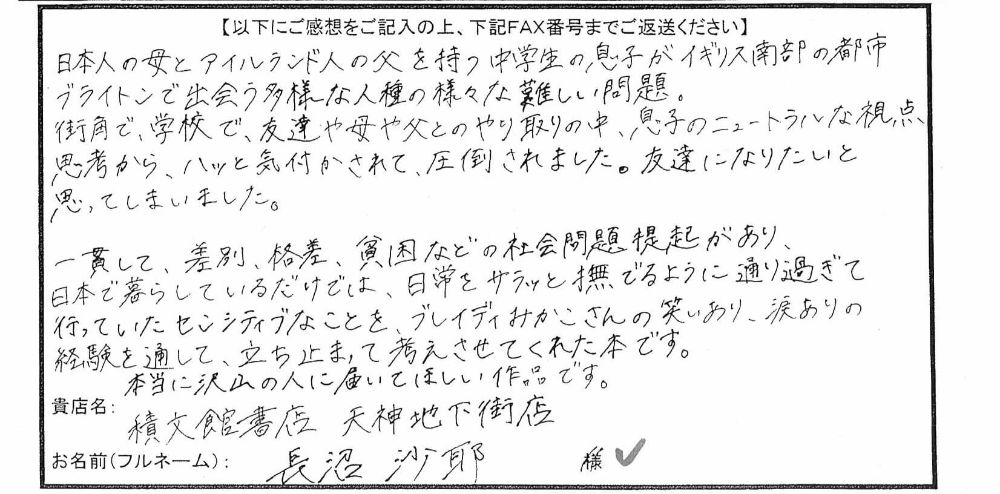 【以下にご感想をご記入の上、下記FAX番号までご返送ください】
日本人の母とアイルランド人の父を持つ中学生の息子がイギリス南部の都市
ブライトンで出会う多様な人種の様々な難しい問題。
街角で、学校で、友達や母や父とのやり取りの中、息子のニュートラルな視点、
思考から、ハッと気付かされて、圧倒されました。友達になりたいと
思ってしまいました。
一貫して、差別、格差、貧困などの社会問題提起があり、
日本で暮らしているだけでは、日常をサラッと撫でるように通り過ぎて
行っていたセンシティブなことを、ブレイディみかこさんの笑いあり、涙ありの
経験を通して、立ち止まって考えさせてくれた本です。
本当に沢山の人に届いてほしい作品です。
貴店名: 積文館書店 天神地下街店
お名前(フルネーム): 長沼 沙耶 様